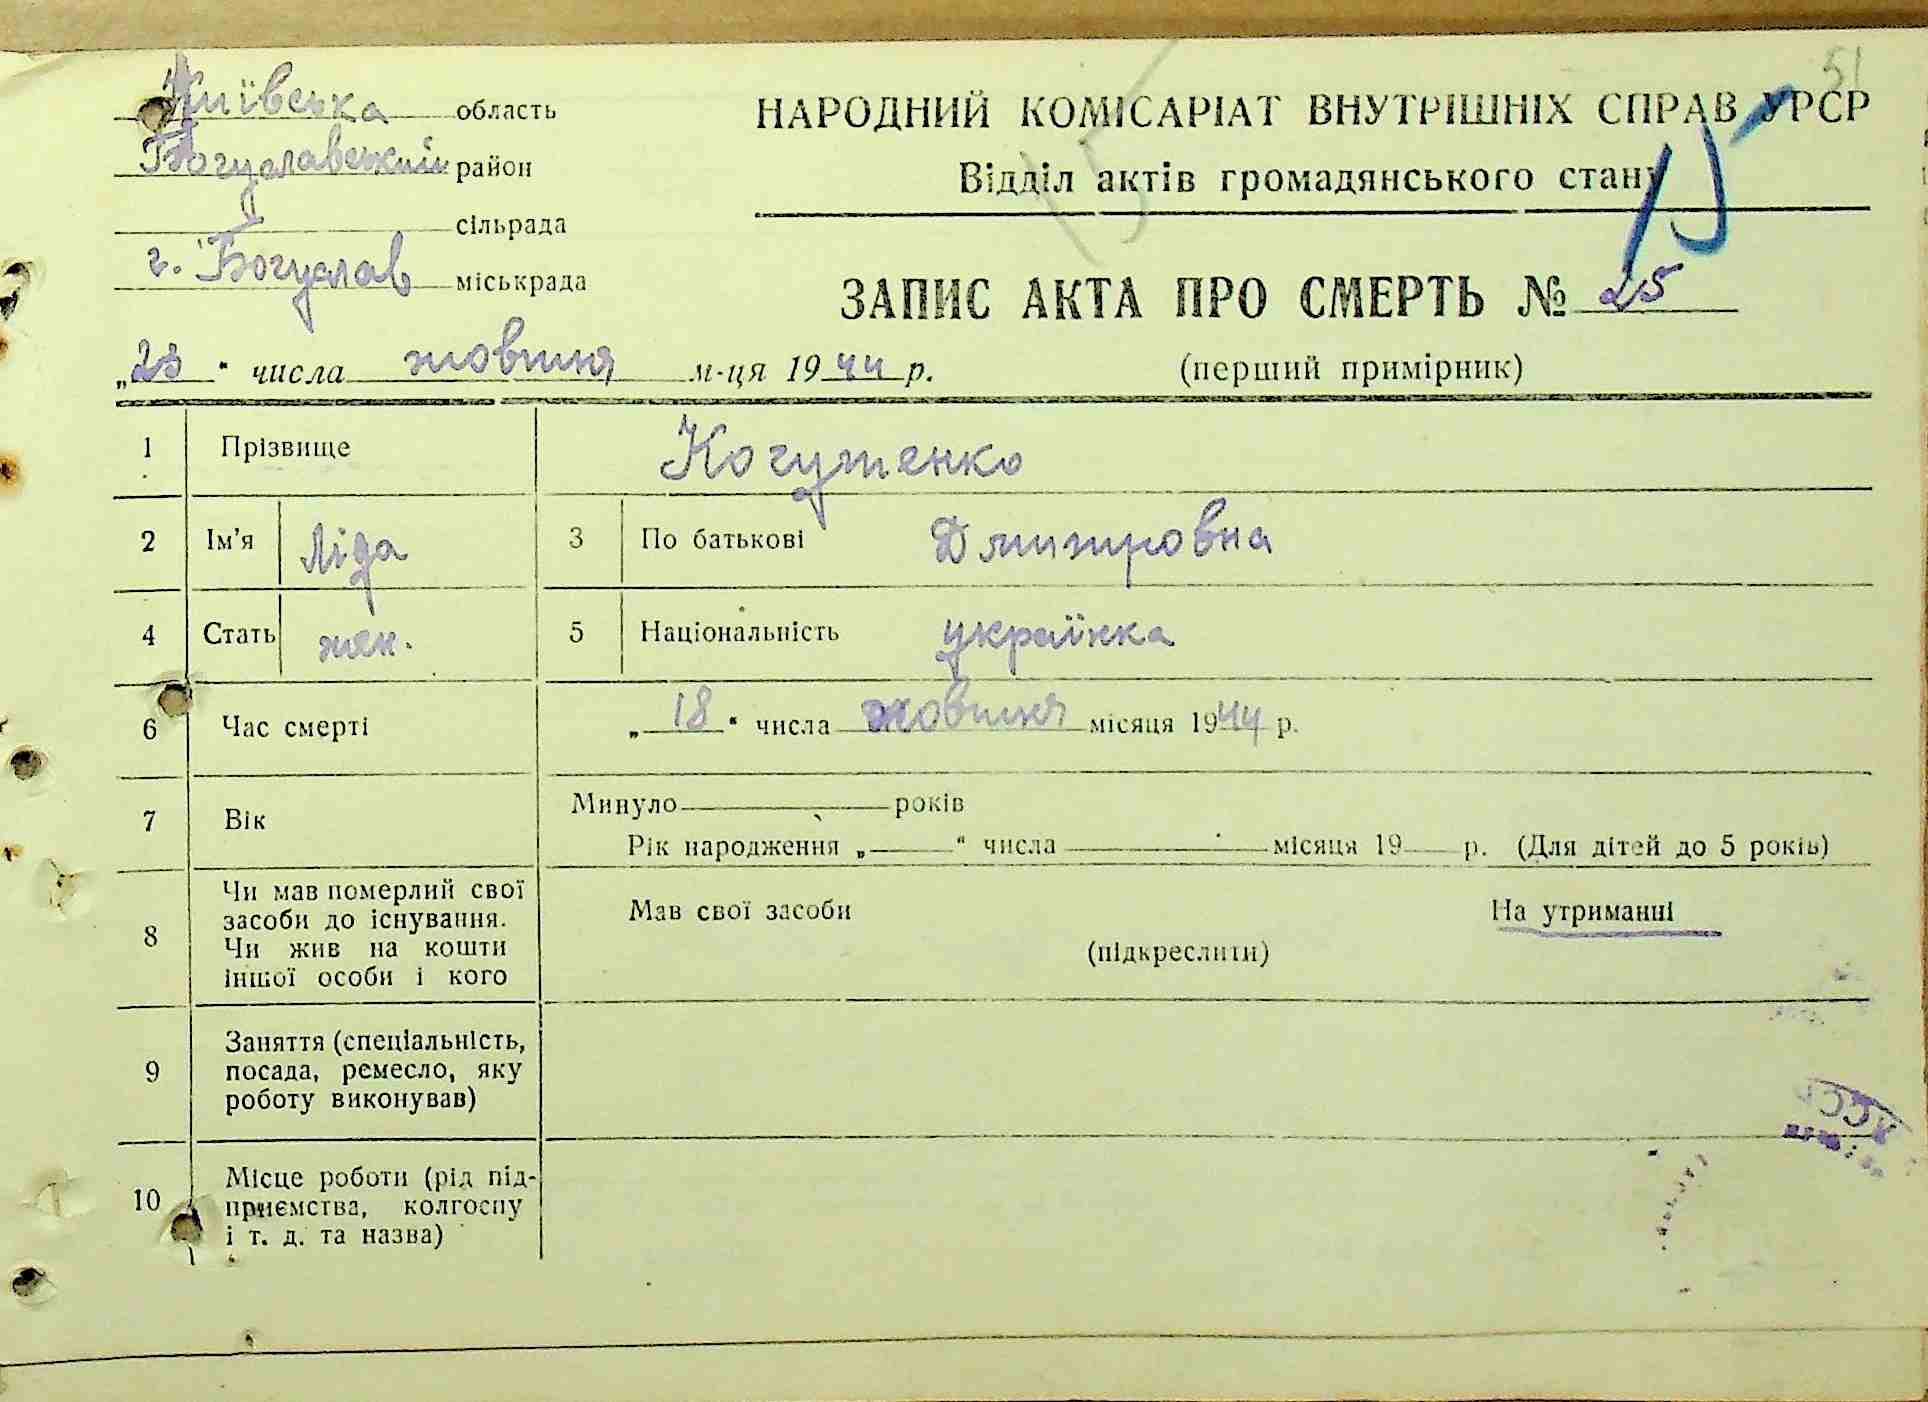 51
Київська область
Богуславський район
сільрада
г. Богуслав міськрада
НАРОДНИЙ КОМІСАРІАТ ВНУТРІШНІХ СПРАВ УРСР
Відділ актів громадянського стану
15
15
ЗАПИС АКТА ПРО СМЕРТЬ № 25
(перший примірник)
„23“ числа жовтня м-ця 1944 р.
1 Прізвище Когутенко
2 Ім'я Ліда 3 По батькові Дмитровна
4 Стать жен. 5 Національність українка
6 Час смерті „18“ числа жовтня місяця 1944 р.
7 Вік Минуло років
Рік народження „ “ числа місяця 19 р. (Для дітей до 5 років)
8 Чи мав померлий свої
засоби до існування.
Чи жив на кошти
іншої особи і кого
Мав свої засоби На утриманні
(підкреслити)
9 Заняття (спеціальність,
посада, ремесло, яку
роботу виконував)
10 Місце роботи (рід під-
приємства, колгоспу
і т. д. та назва)